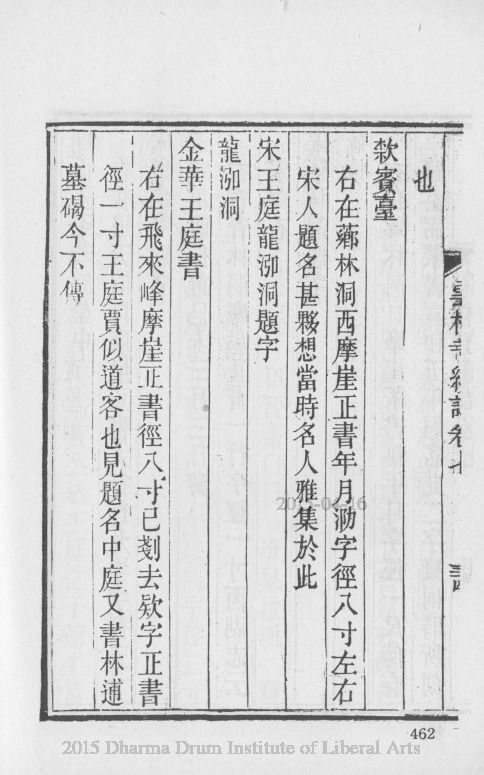 也
欵賔臺
右在薌林洞西摩崖正書年月泐字徑八寸左右
宋人題名甚夥想當時名人雅集於此
宋王庭龍泐洞題字
龍泐洞
金華王庭書
右在飛來峰摩崖正書徑八寸已剗去欵字正書
徑一寸王庭賈似道客也見題名中庭又書林逋
墓碣今不傳
卷七
2015-04-16
462
2015 Dharma Drum Institute of Liberal Arts